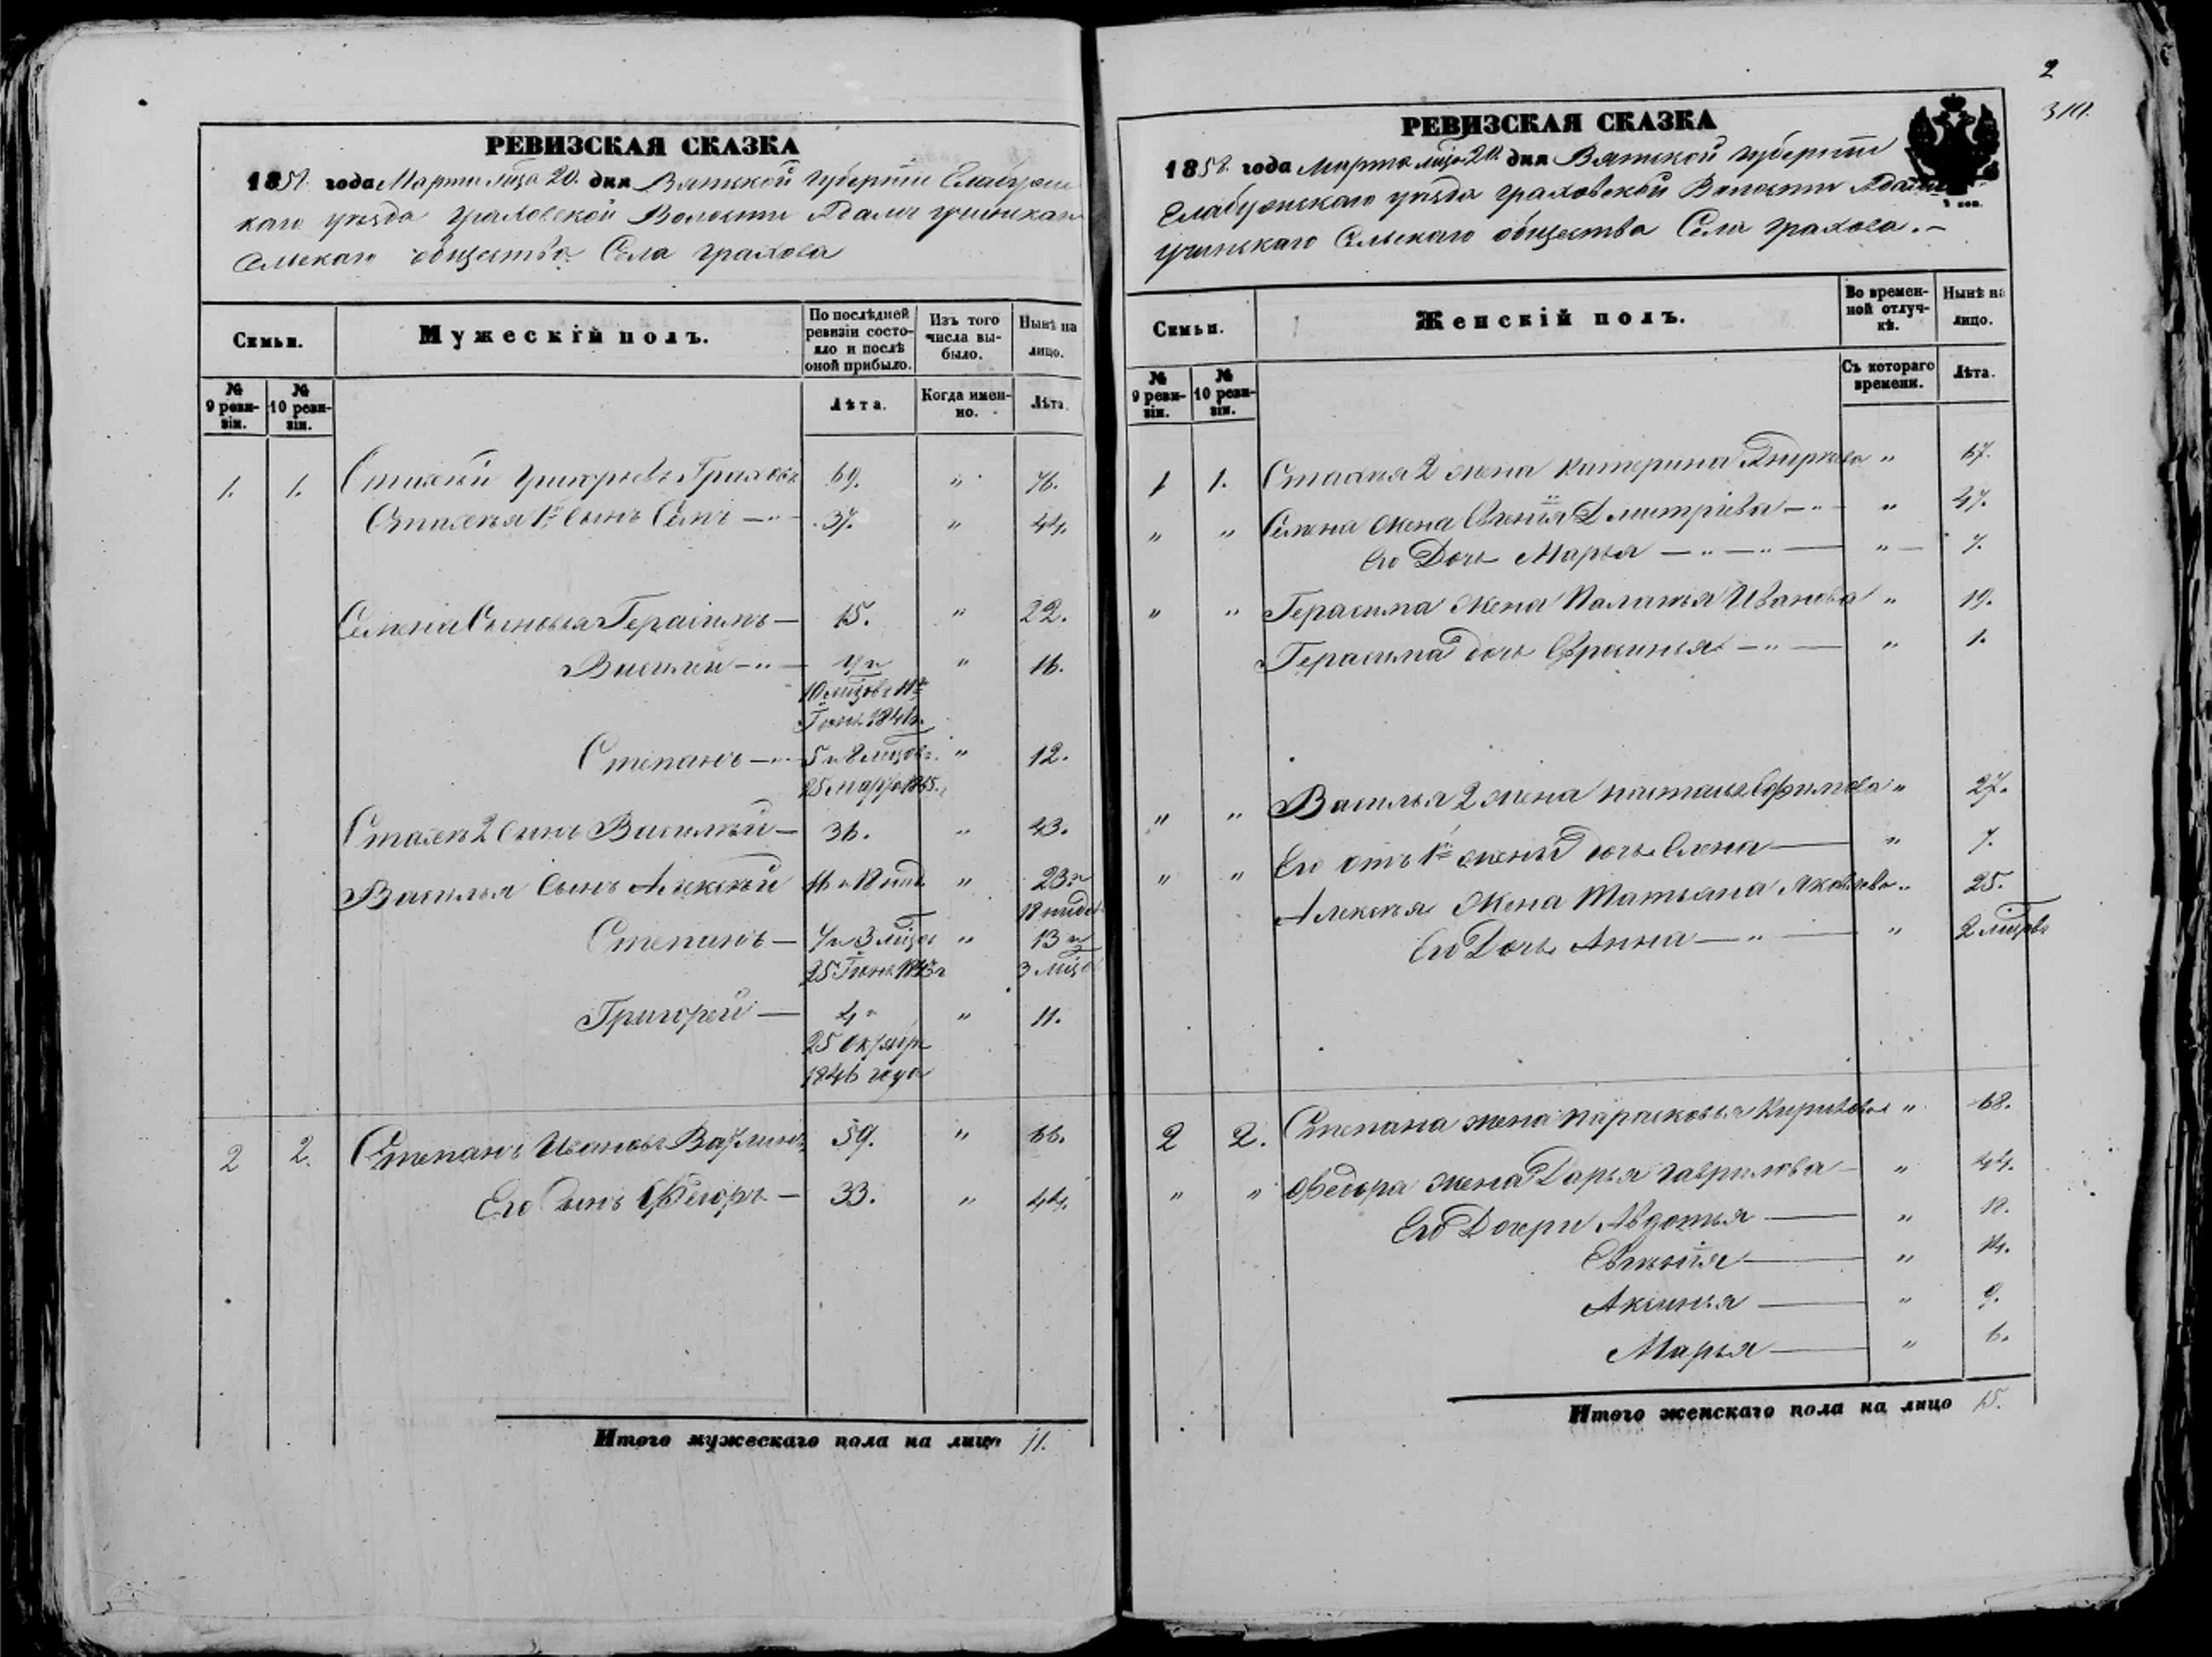 2
319.
РЕВИЗСКАЯ СКАЗКА
1858 года Марта мца 20. дня Вятской губернiи Елабужс
каго уѣзда Граховской Волости Адамъ Учинскаго
Сельскаго общества Села Грахова
Семьи.
Мужескій полъ.
По послѣдней ревизіи состояло и послѣ оной прибыло.
Изъ того числа выбыло.
Нынѣ на лицо.
№ 9 ревизіи.
№ 10 ревизіи.
Лѣта.
Когда именно.
Лѣта.
1. 1. Стахѣй Григорьевъ Граховъ 69. " 76.
Стахѣя 1й Сынъ Семенъ —"— 37. " 44.
Семена Сыновья Герасимъ — 15. " 22.
Василей —"— " 16.
Степанъ —"— 5 и 8 мцовъ. " 12.
25 марта
Стахѣя 2 Сынъ Василей — 36. " 43.
Василья Сынъ Алексѣй " 23 и
Степанъ — " 13 и
25 Іюня 3 мцовъ
Григорей — 4 " 11.
25 Октября
1846 года
2 2. Степанъ Ивановъ 59. " 66.
Его Сынъ Ѳедоръ — 33. " 44.
Итого мужескаго пола на лицо 11.
РЕВИЗСКАЯ СКАЗКА
1858 года Марта мца 20. дня Вятской губернiи
Елабужскаго уѣзда Граховской Волости Адамъ
Учинскаго Сельскаго общества Села Грахова.—
Семьи.
Женскій полъ.
Во временной отлучкѣ.
Нынѣ на лицо.
№ 9 ревизіи.
№ 10 ревизіи.
Съ котораго времени.
Лѣта.
1 1. Стахѣя 2 жена Катерина " 67.
" " Семена жена Евгенія Дмитріева —"— " 47.
Его Дочь Марья —"—"— " 7.
" " Герасима жена Палагья Иванова " 19.
Герасима дочь Ефросинья —"— " 1.
" " Василья 2 жена Настасья Ефимова " 27.
" " Его отъ 1й жены Дочь Елена — " 7.
Алексѣя жена Татьяна Яковлева " 25.
Его Дочь Анна —"— " 2 мцовъ
2 2. Степана жена Парасковья Кирилова " 68.
" " Ѳедора жена Дарья Гаврилова — " 44.
Его Дочери Авдотья — " 18.
Евгенія — " 14.
Аксинья — " 9.
Марья — " 6.
Итого женскаго пола на лицо 15.